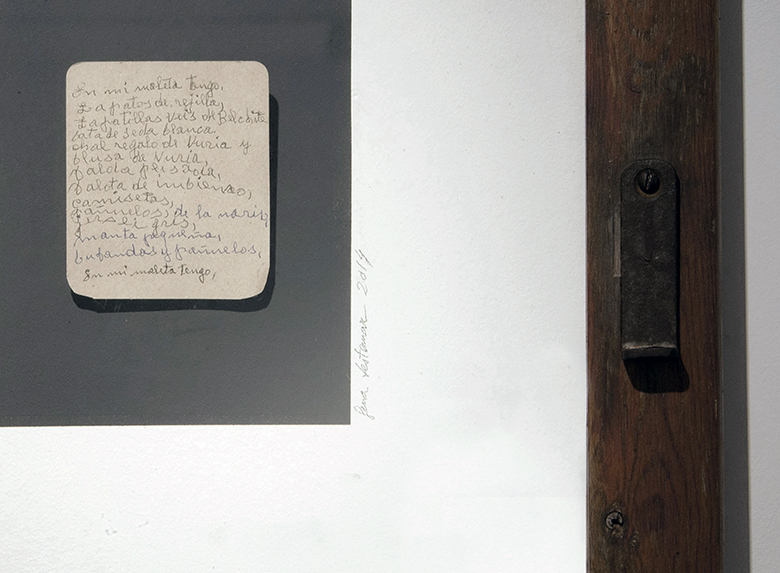 En mi maleta tengo,
Zapatos de rejilla,
Zapatillas de Belchite
bata de seda blanca
chal regalo de Nuria y
blusa de Nuria,
palota
palota de imbienno,
camisetas,
pañuelos, de la nariz,
Jersei gris,
manta pequeña,
bufandas y pañuelos,
En mi maleta tengo,
2014